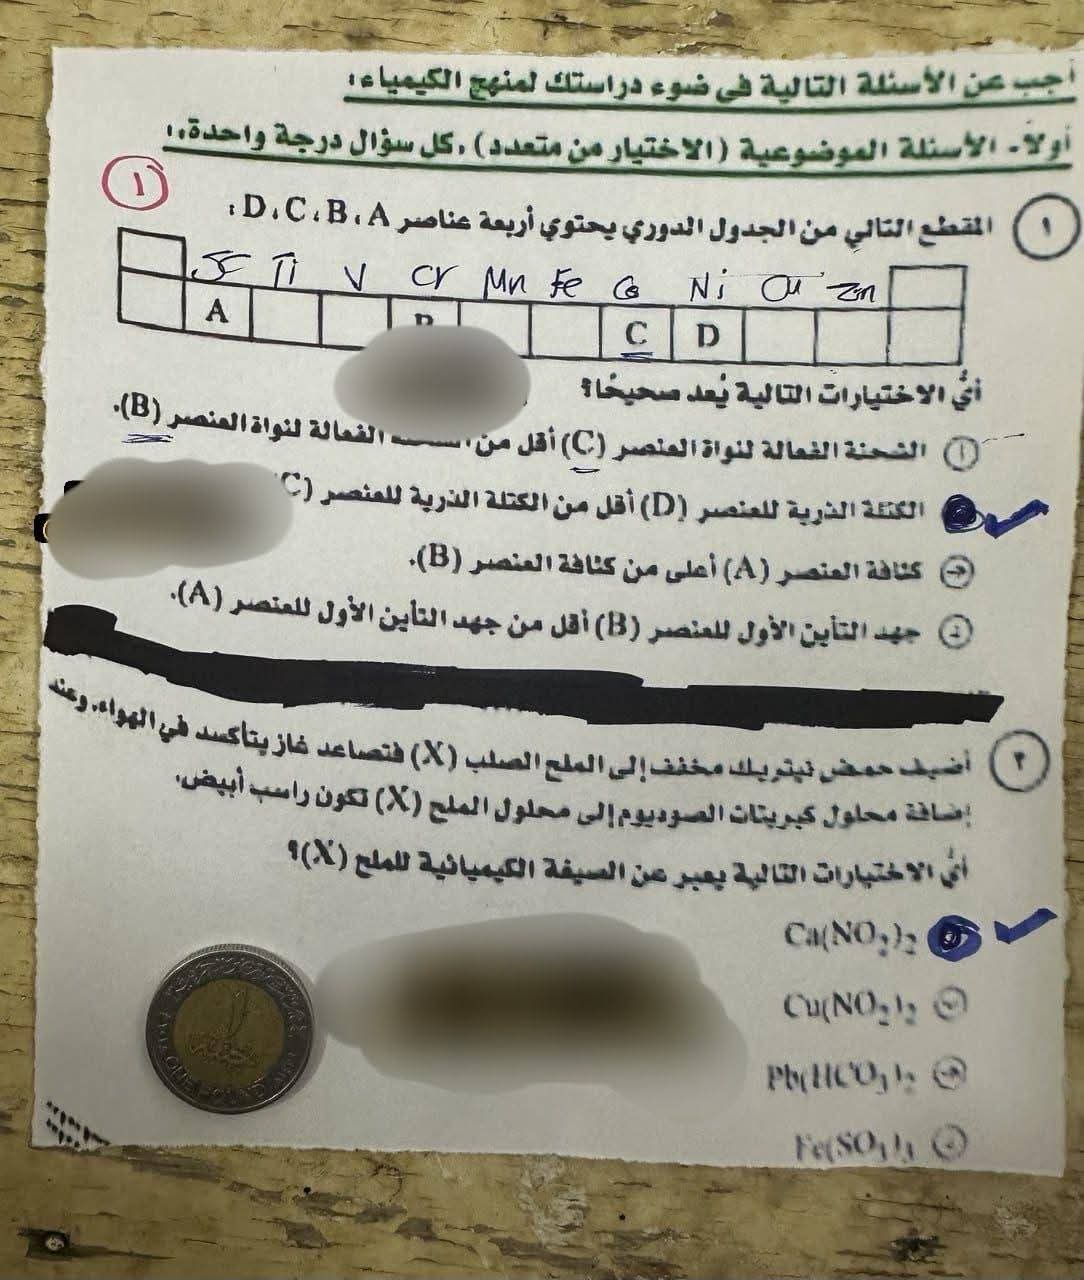 أجب عن الأسئلة التالية في ضوء دراستك لمنهج الكيمياء:
أولًا- الأسئلة الموضوعية (الاختيار من متعدد)، كل سؤال درجة واحدة،:
١
١ المقطع التالي من الجدول الدوري يحتوي أربعة عناصر D، C، B، A:
Sc Ti V Cr Mn Fe Co Ni Cu Zn
A B C D
أيُّ الاختيارات التالية يُعد صحيحًا؟
أ الشحنة الفعالة لنواة العنصر (C) أقل من الشحنة الفعالة لنواة العنصر (B).
الكتلة الذرية للعنصر (D) أقل من الكتلة الذرية للعنصر (C
ج كثافة العنصر (A) أعلى من كثافة العنصر (B).
د جهد التأين الأول للعنصر (B) أقل من جهد التأين الأول للعنصر (A).
٢ أضيف حمض نيتريك مخفف إلى الملح الصلب (X) فتصاعد غاز يتأكسد في الهواء، وعند
إضافة محلول كبريتات الصوديوم إلى محلول الملح (X) تكون راسب أبيض،
أيُّ الاختيارات التالية يعبر عن الصيغة الكيميائية للملح (X)؟
Ca(NO₂)₂
ب Cu(NO₂)₂
ج Pb(HCO₃)₂
د Fe(SO₃)₃